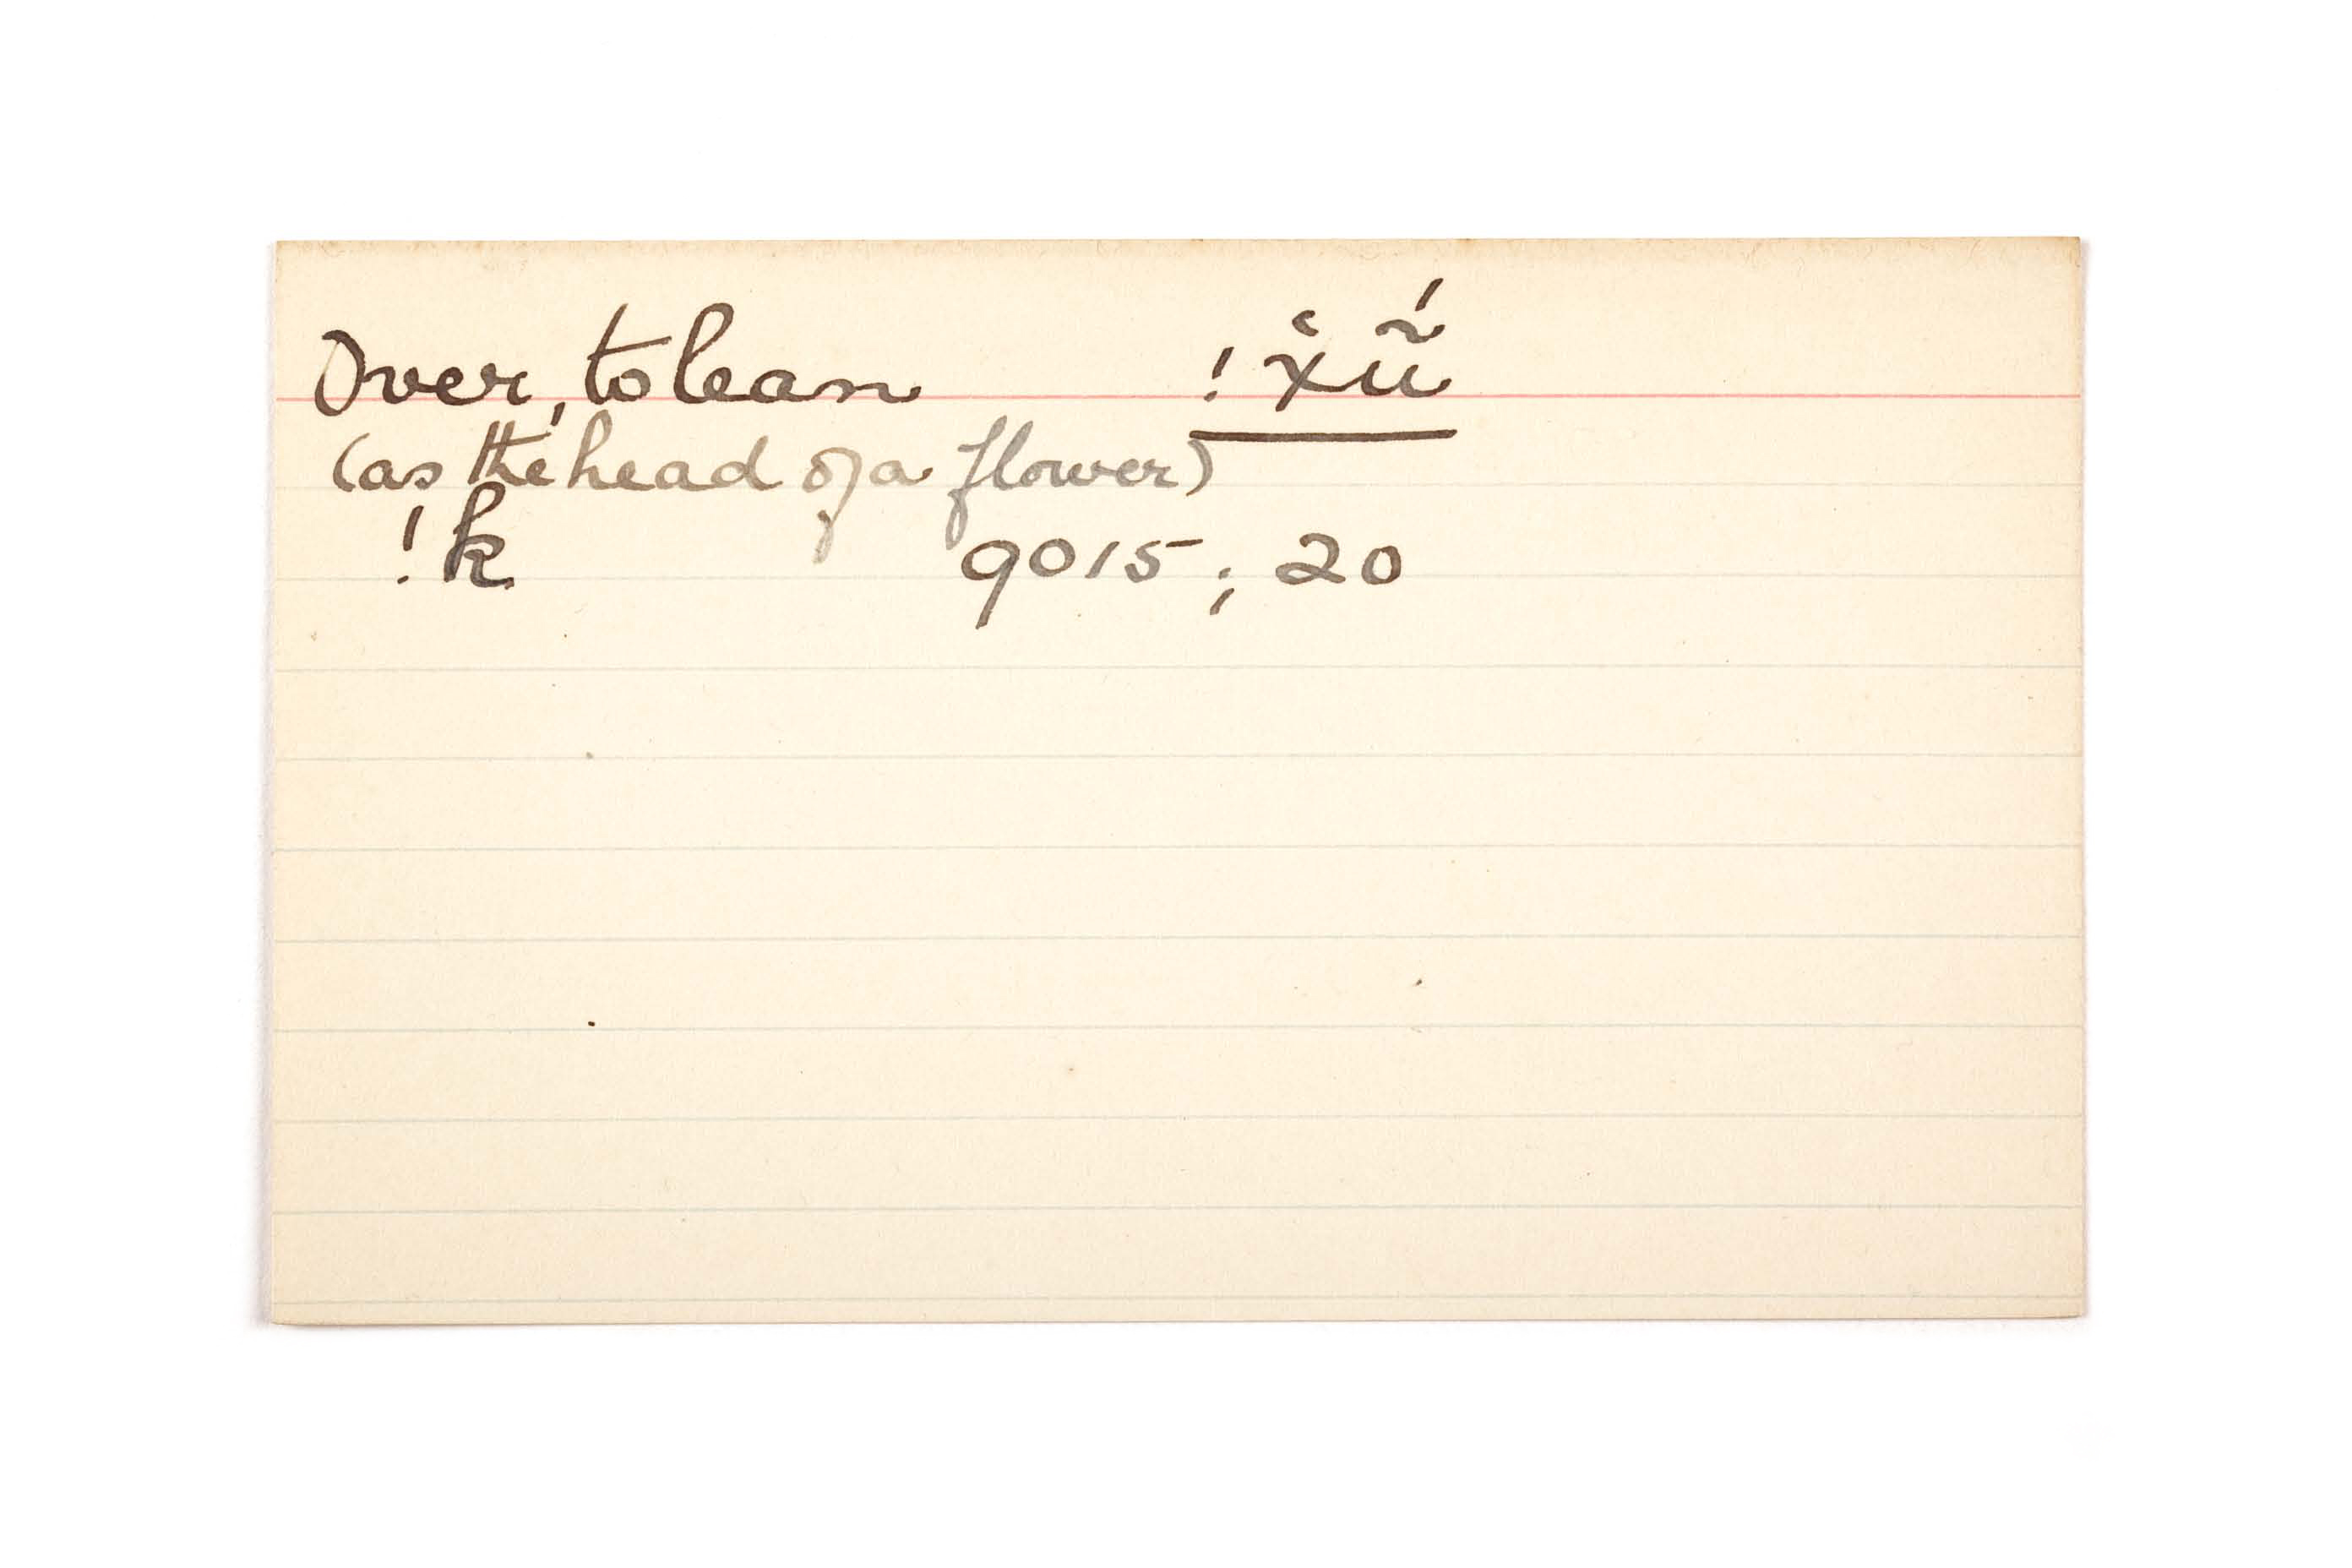 Over, to lean ! x̔ṹ
(as the head of a flower)
!k 9015; 20